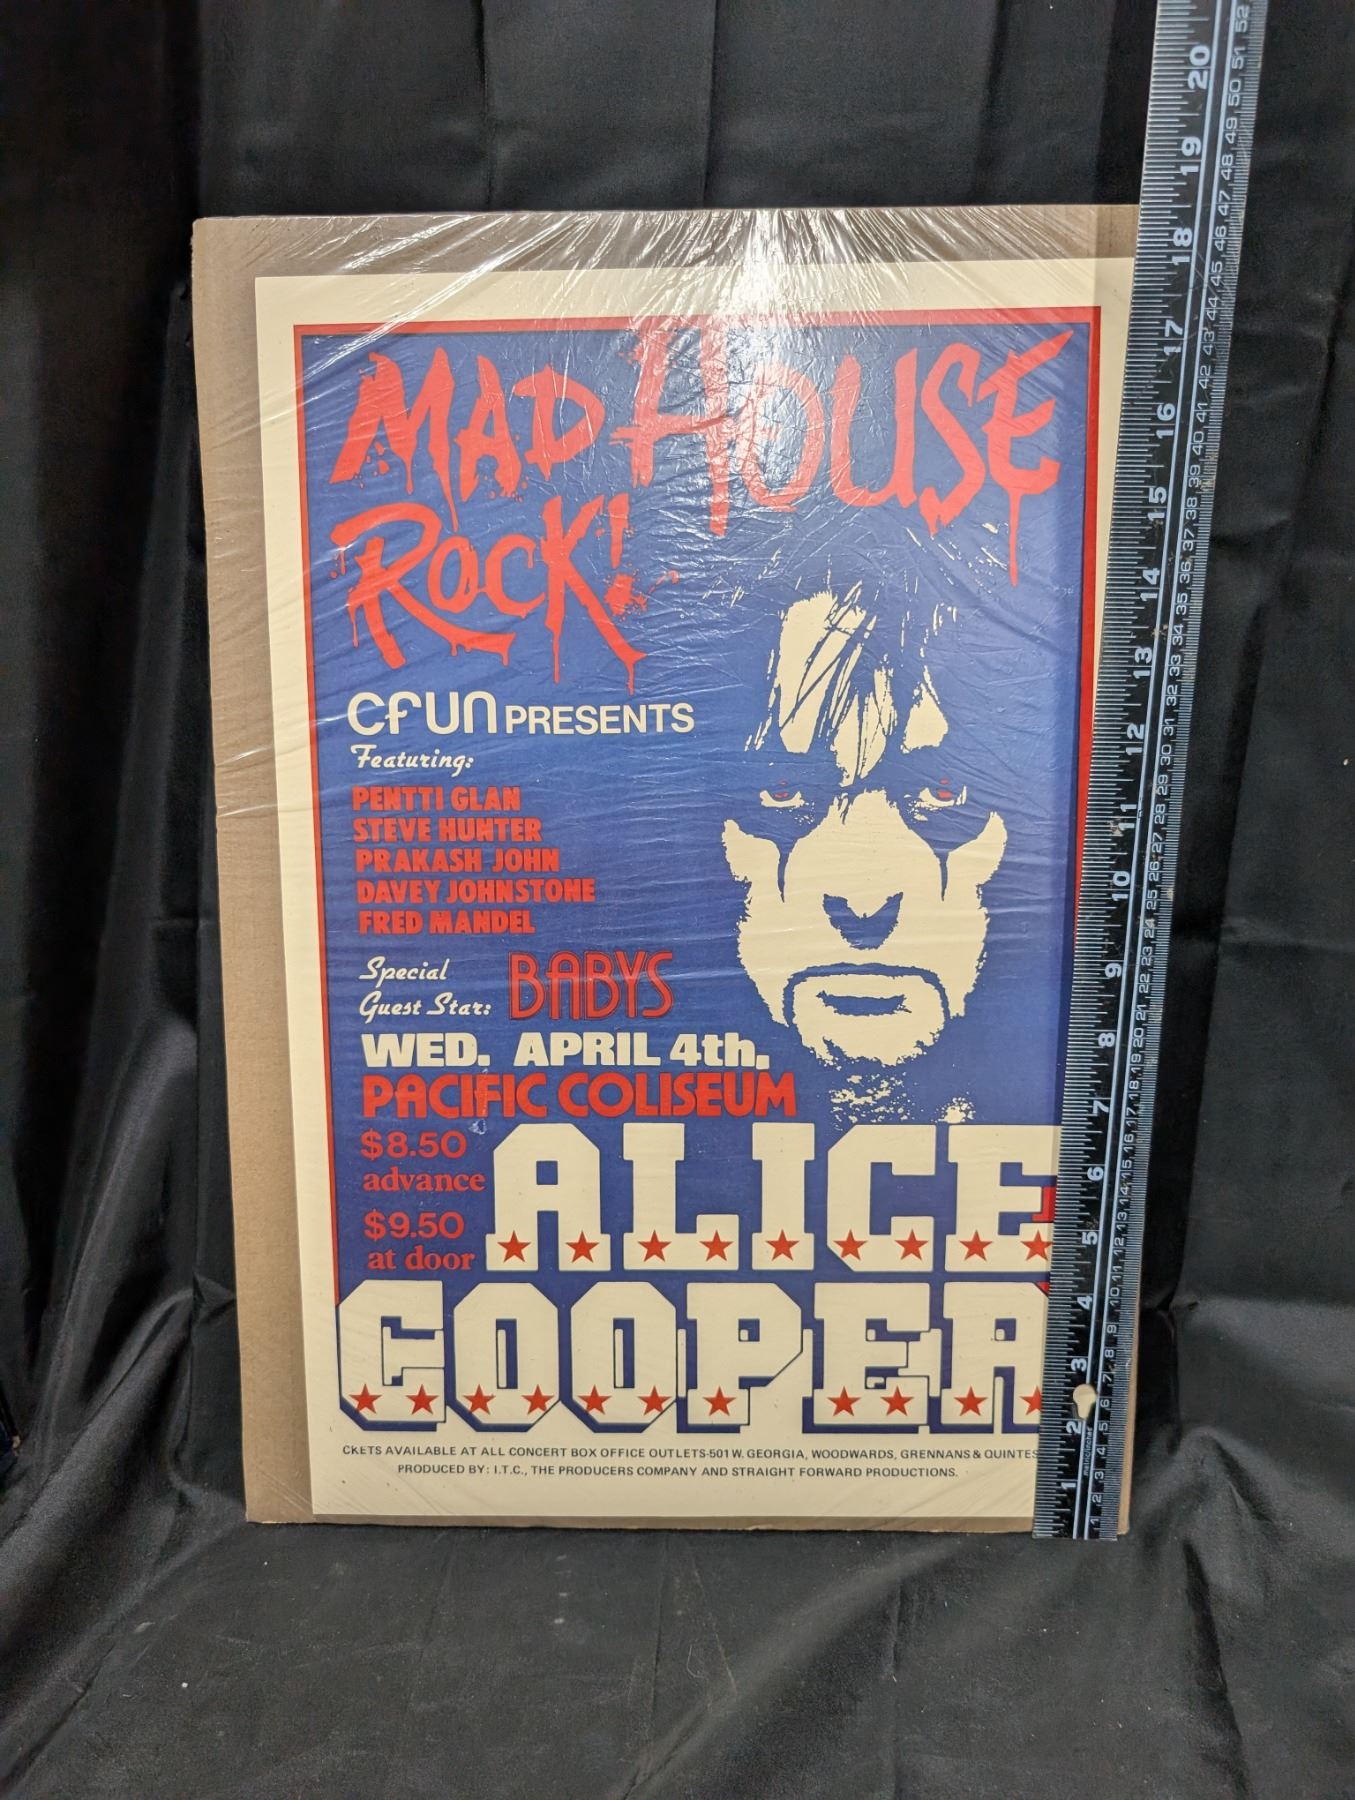 MAD HOUSE
ROCK!
CFUN PRESENTS
Featuring:
PENTTI GLAN
STEVE HUNTER
PRAKASH JOHN
DAVEY JOHNSTONE
FRED MANDEL
Special
Guest Star: BABYS
WED. APRIL 4th,
PACIFIC COLISEUM
$8.50
advance
$9.50
at door
ALICE
COOPER
CKETS AVAILABLE AT ALL CONCERT BOX OFFICE OUTLETS-501 W. GEORGIA, WOODWARDS, GRENNANS & QUINTES
PRODUCED BY: I.T.C., THE PRODUCERS COMPANY AND STRAIGHT FORWARD PRODUCTIONS.
1 2 3 4 5 6 7 8 9 10 11 12 13 14 15 16 17 18 19 20
1 2 3 4 5 6 7 8 9 10 11 12 13 14 15 16 17 18 19 20 21 22 23 24 25 26 27 28 29 30 31 32 33 34 35 36 37 38 39 40 41 42 43 44 45 46 47 48 49 50 51 52